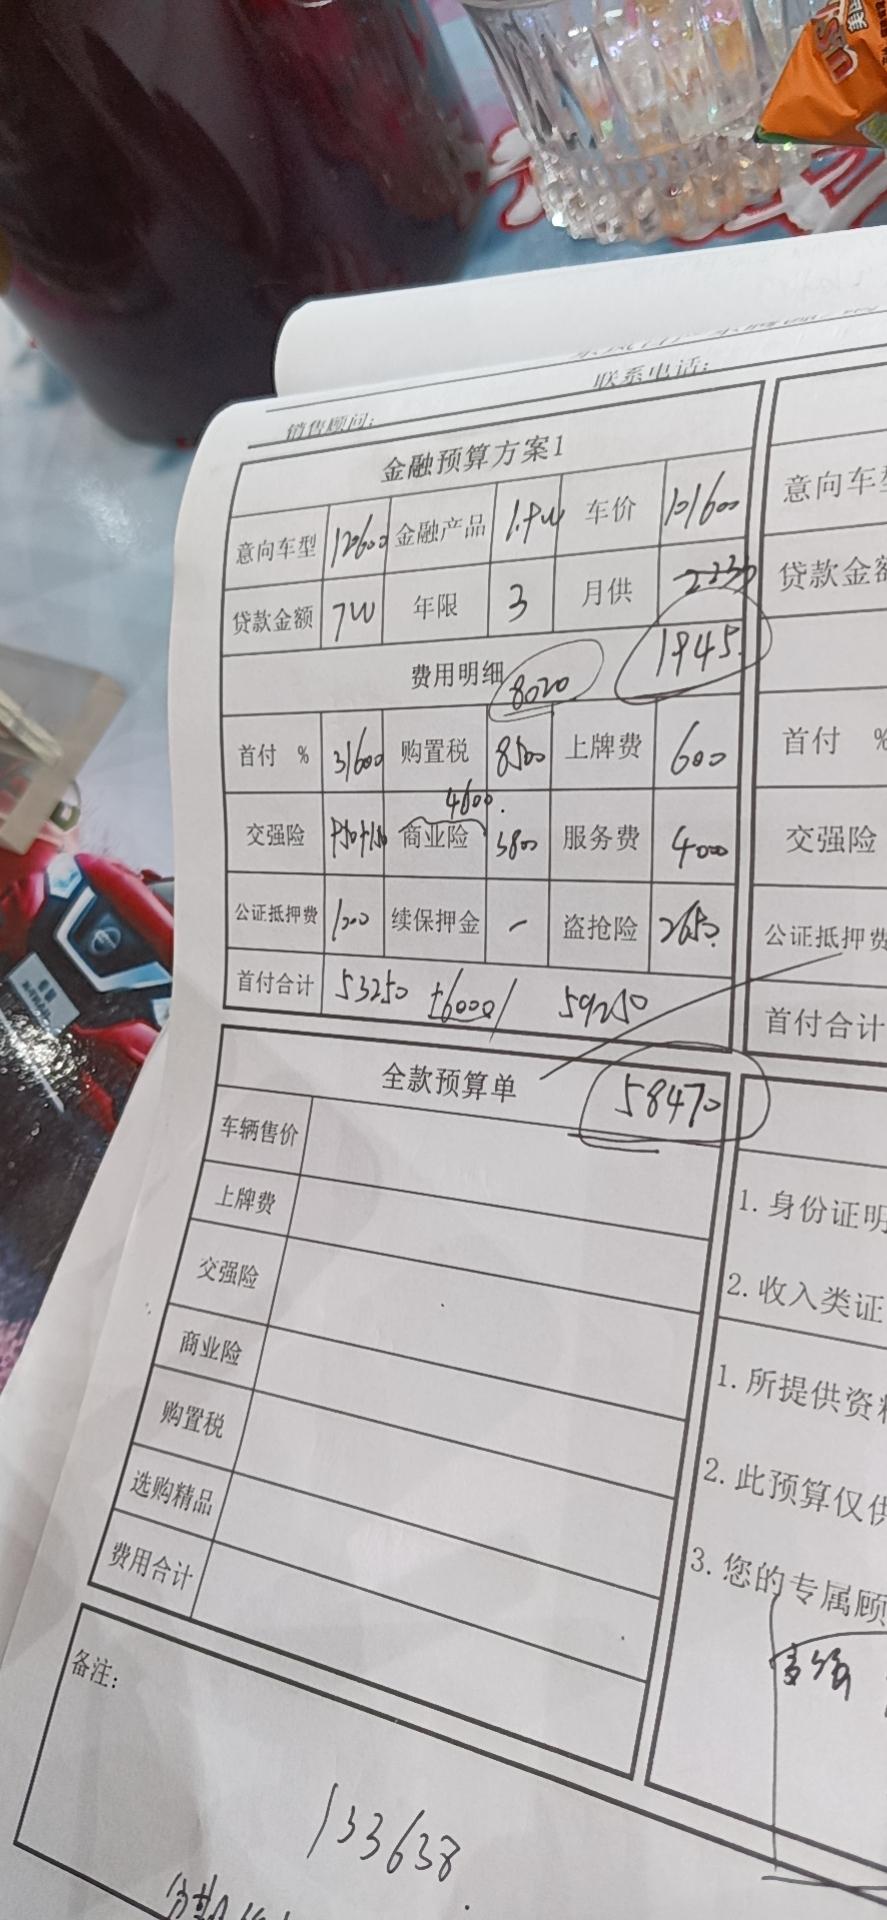 联系电话:
销售顾问:
金融预算方案1
意向车型 12600 金融产品 车价 101600
意向车型
贷款金额 7W 年限 3 月供 2230
贷款金额
1945
费用明细 8020
首付 % 31600 购置税 8500 上牌费 600
首付 %
4600.
交强险 商业险 3800 服务费 4000
交强险
公证抵押费 续保押金 - 盗抢险 2650
公证抵押费
首付合计 53250 +6000 59250
首付合计
全款预算单 58470
车辆售价
上牌费
交强险
商业险
购置税
选购精品
费用合计
1.身份证明
2.收入类证
1.所提供资料
2.此预算仅供
3.您的专属顾
备注:
133638